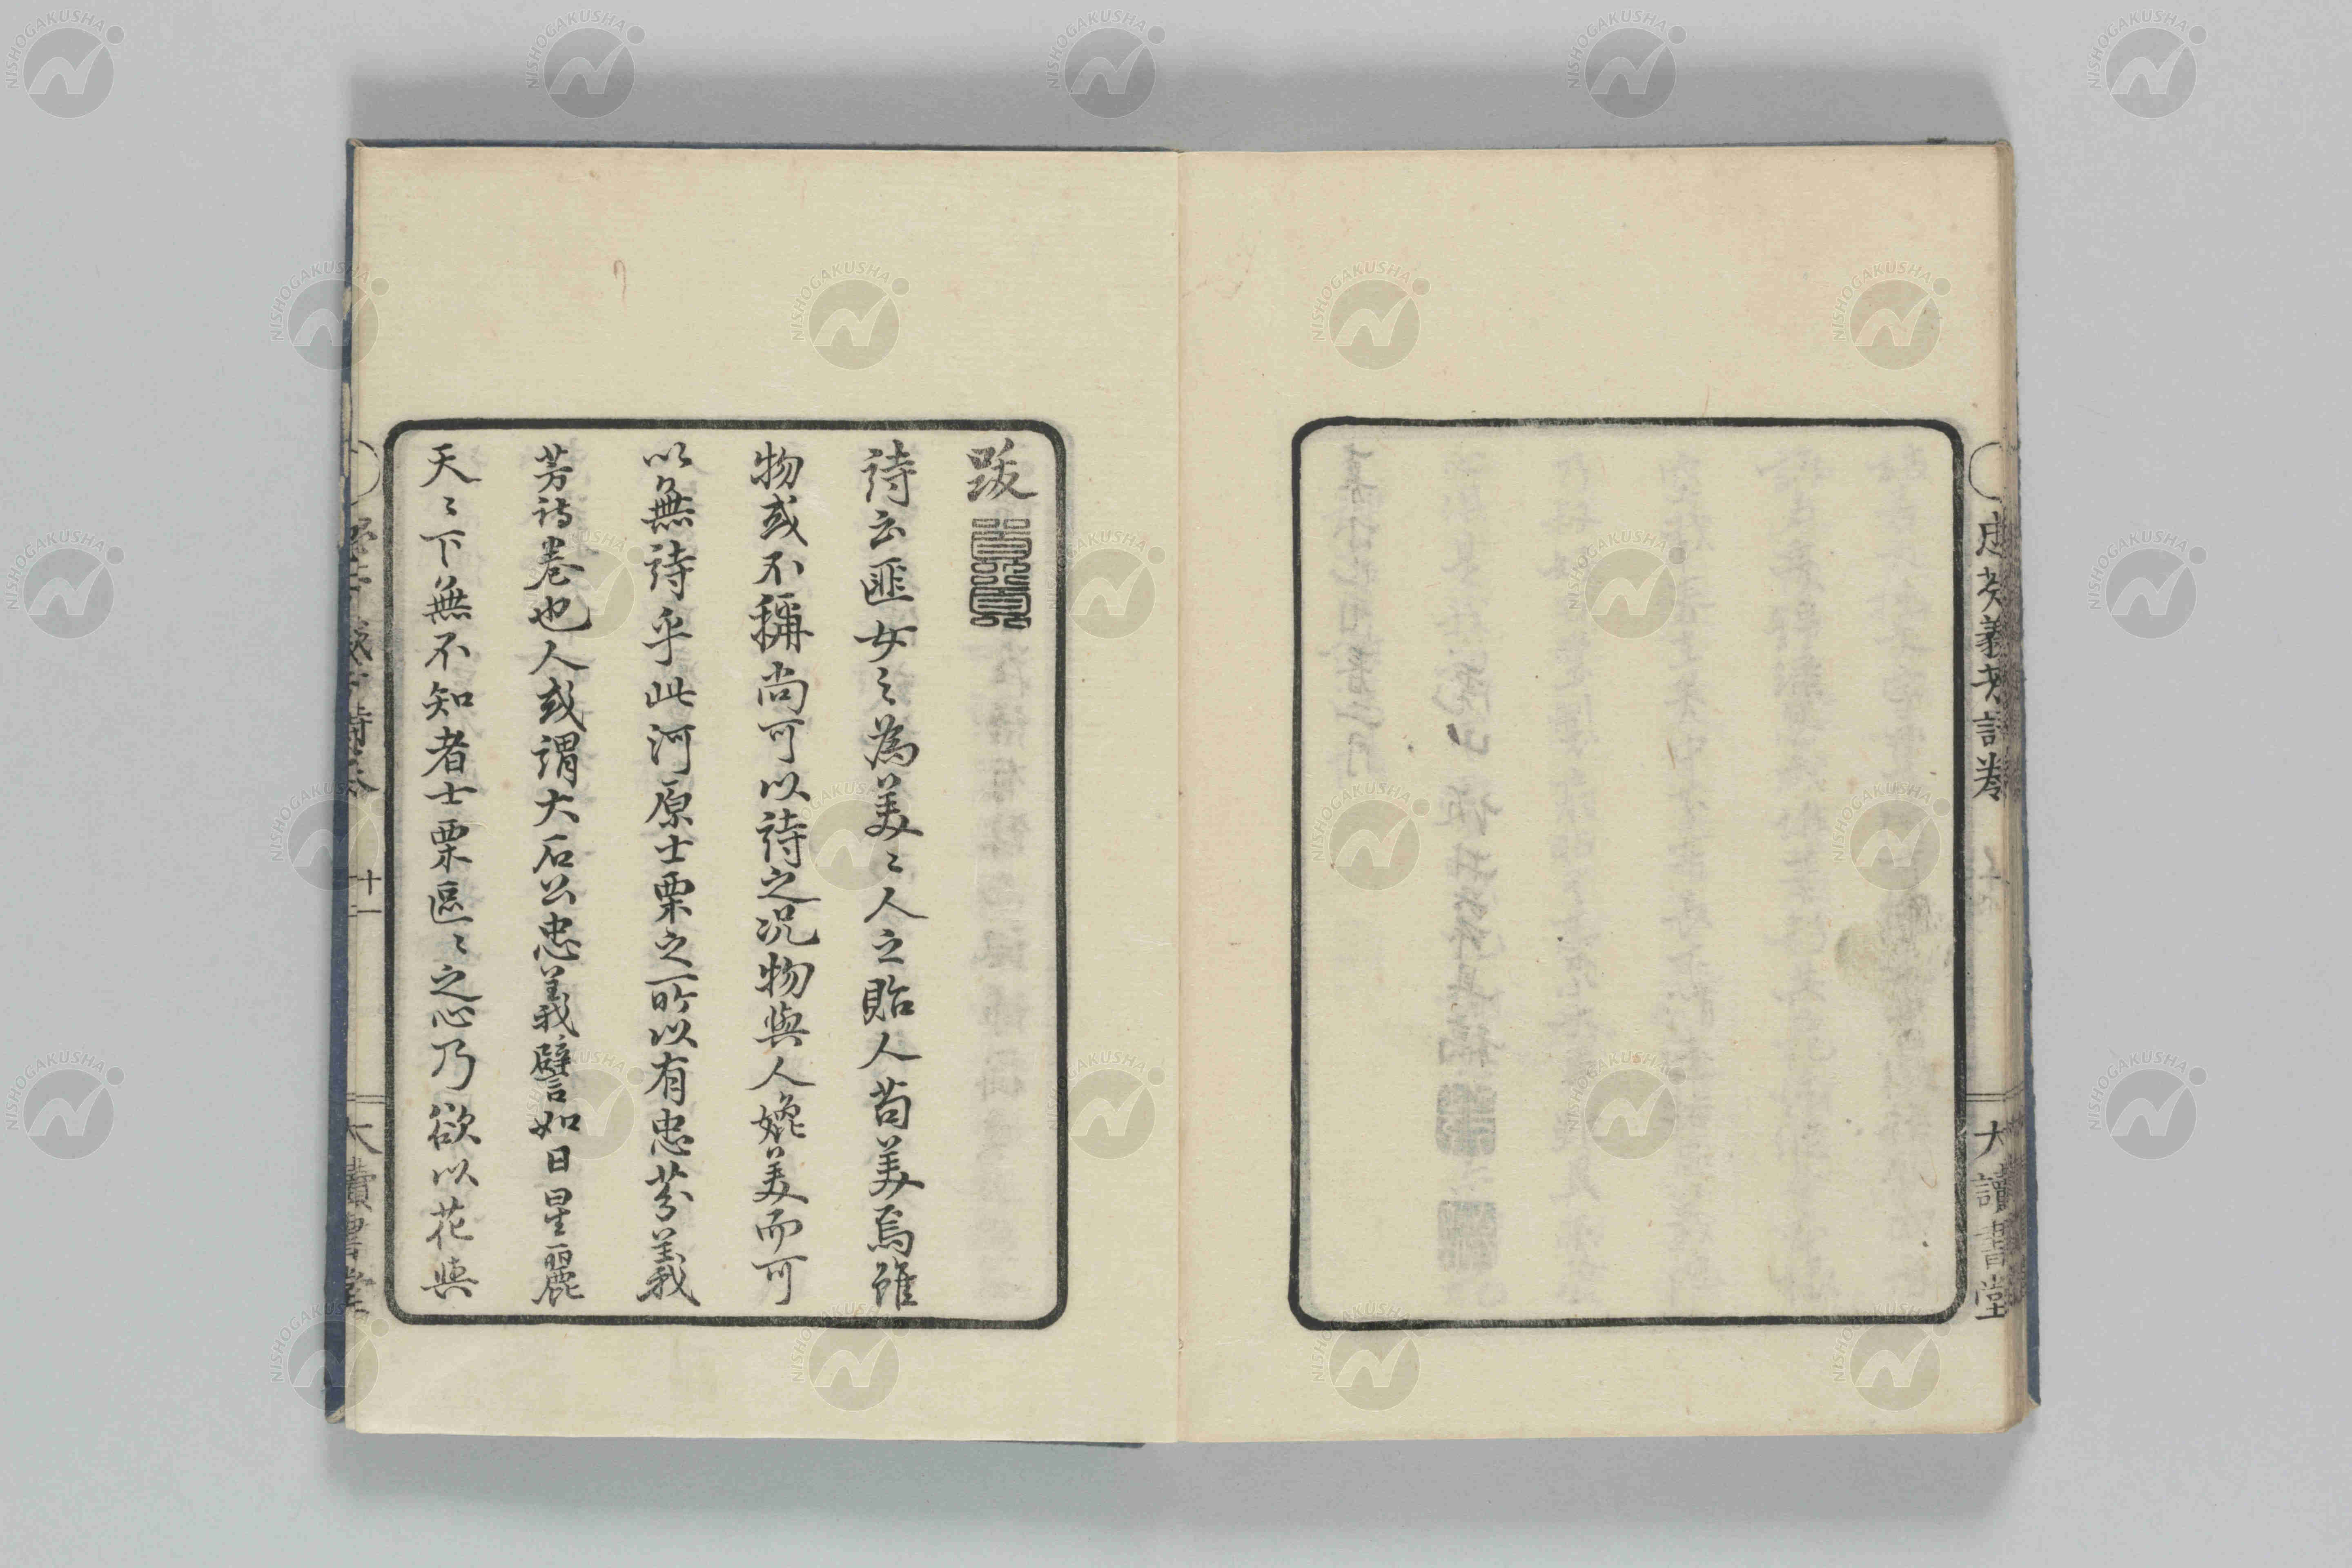 忠芬義芳詩卷
大讀書堂
跋
詩云匪女之為美〻人之貽人苟美焉雖
物或不稱尚可以詩之况物與人媲美而可
以無詩乎此河原士栗之所以有忠芬義
芳詩卷也人或謂大石公忠義譬如日星麗
天〻下無不知者士栗區〻之心乃欲以花與
十一
大讀書堂
NISHOGAKUSHA